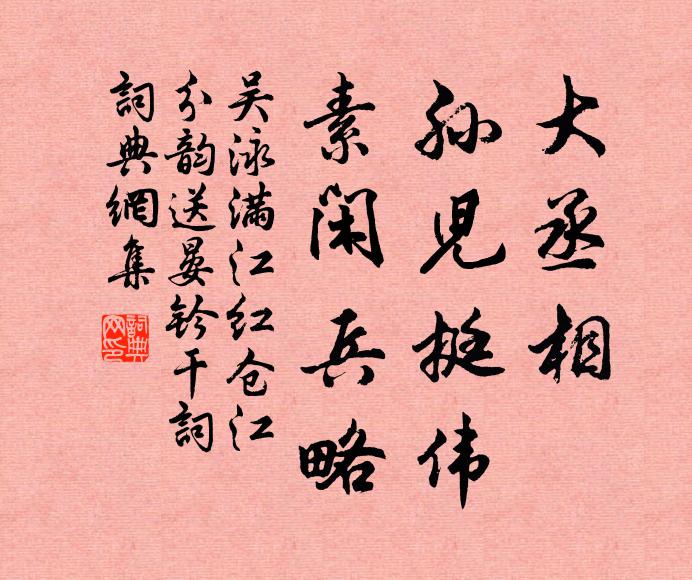 大丞相
孙児挺伟
素闲兵略
吴泳满江红仓江
分韵送晏铃干詞
詞典網集
詞典网印